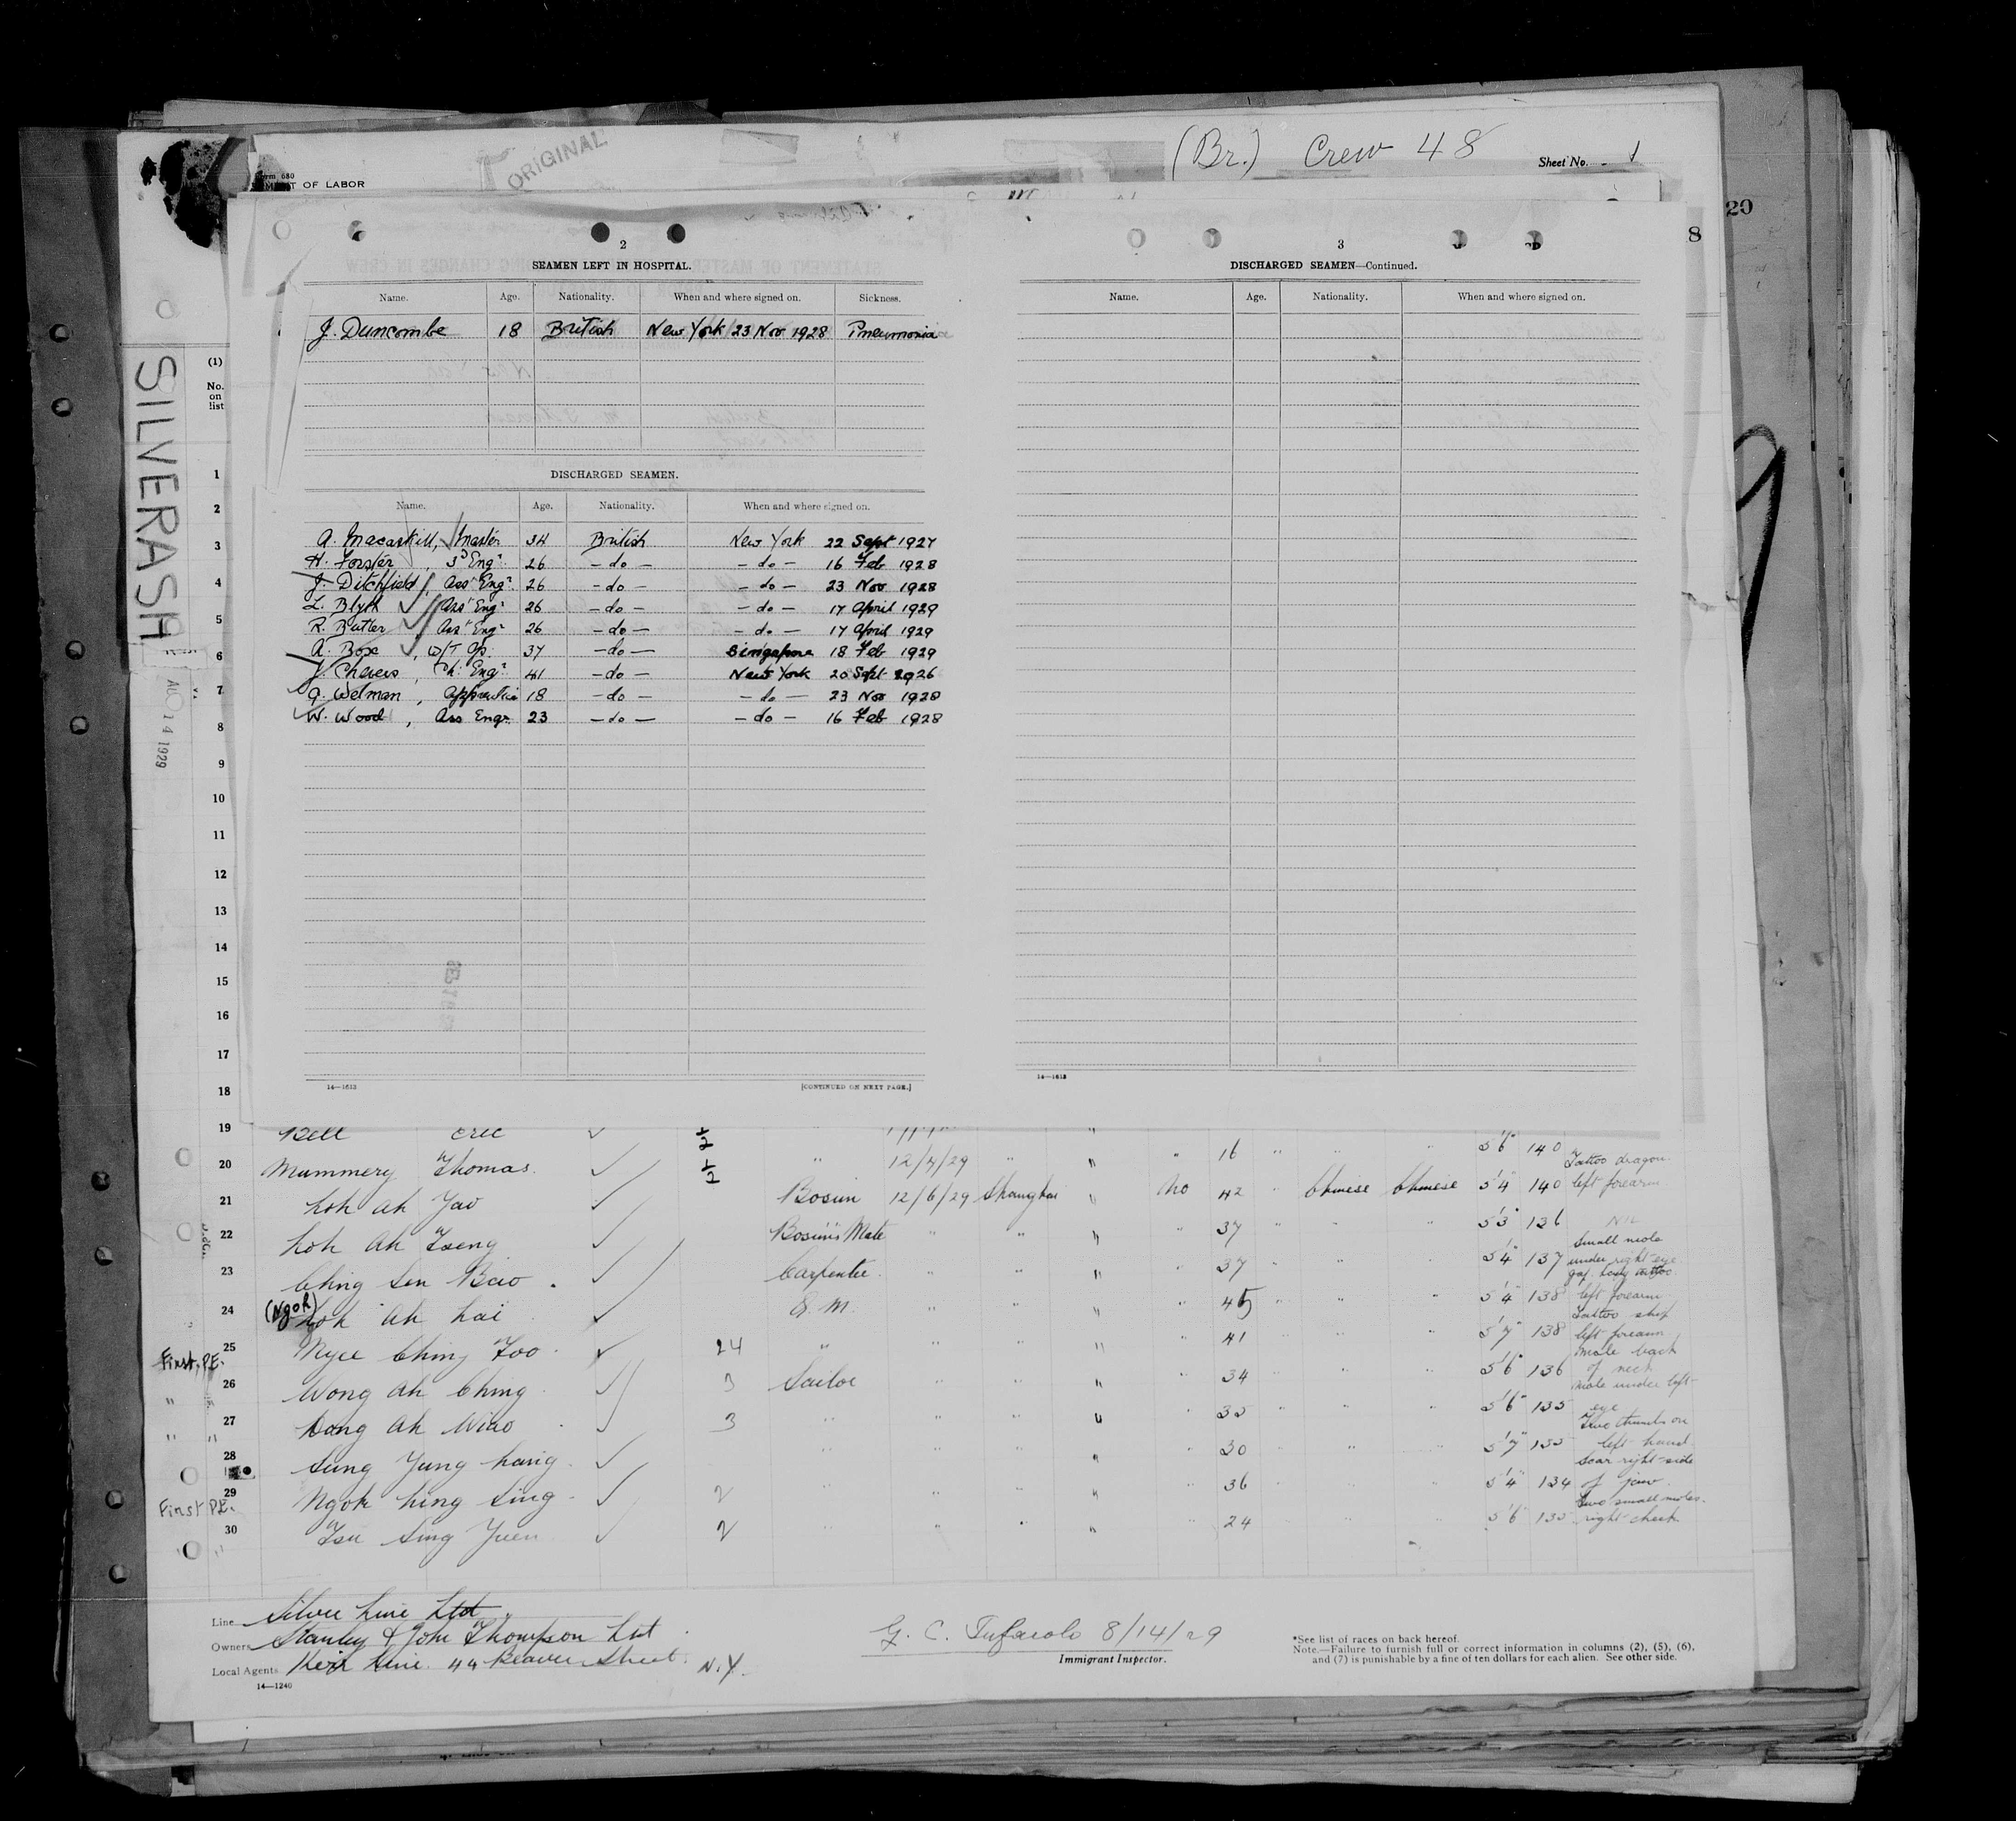 ORIGINAL
(Br.) Crew 48
Sheet No. 1
Form 680
OF LABOR
20
8
SILVERASH
AUG 14 1929
(1)
No. on list
2
SEAMEN LEFT IN HOSPITAL.
Name. Age. Nationality. When and where signed on. Sickness.
J. Duncombe 18 British New York 23 Nov 1928 Pneumonia
DISCHARGED SEAMEN.
Name. Age. Nationality. When and where signed on.
A. Macaskill, Master 34 British New York 22 Sept 1927
H. Forster, 3D Engr. 26 -do- -do- 16 Feb 1928
J. Ditchfield, Asst Engr 26 -do- -do- 23 Nov 1928
L. Blyth Asst Engr 26 -do- -do- 17 April 1929
R. Butler Asst Engr 26 -do- -do- 17 April 1929
A. Box, W/T Op. 37 -do- Singapore 18 Feb 1929
J. Cheers, Ch. Engr 41 -do- New York 20 Sept 1926
A. Welman, Apprentice 18 -do- -do- 23 Nov 1928
W. Wood, Ass Engr. 23 -do- -do- 16 Feb 1928
14—1613
[CONTINUED ON NEXT PAGE.]
3
DISCHARGED SEAMEN—Continued.
Name. Age. Nationality. When and where signed on.
14—1613
1
2
3
4
5
6
7
8
9
10
11
12
13
14
15
16
17
18
19 Bell Eric
20 Mummery Thomas. 1/2 " 12/4/29 " " " 16 " " " 5'6" 140
21 Loh Ah Yao Bosun 12/6/29 Shanghai " No 42 " Chinese Chinese 5'4" 140 Tattoo dragon left forearm
22 Loh Ah Tseng Bosun's Mate " " " " 37 " " " 5'3" 136 Nil
23 Ching Sen Bao Carpenter " " " " 37 " " " 5'4" 137 Small mole under right eye
24 (Ngoh) Loh Ah Kai Q. M. " " " " 45 " " " 5'4" 138 left forearm
First P.E. 25 Nyee Ching Foo 24 " " " " " 41 " " " 5'7" 138 Tattoo ship left forearm
" 26 Wong Ah Ching 3 Sailor " " " " 34 " " " 5'6" 136 Mole back of neck
" " 27 Dong Ah Miao 3 " " " " " 35 " " " 5'6" 135 Mole under left eye
28 Sung Yung Kang " " " " " 30 " " " 5'7" 135 Two thumbs on left hand
First P.E. 29 Ngoh Hing Sing 2 " " " " " 36 " " " 5'4" 134 Scar right side of jaw
" " 30 Tsu Sing Yuen 2 " " " " " 24 " " " 5'6" 135 Two small moles right cheek
Line Silver Line Ltd.
Owners Stanley & John Thompson Ltd
Local Agents Kerr Line. 44 Beaver Street. N.Y.
14—1240
G. C. Tufarolo 8/14/29
Immigrant Inspector.
*See list of races on back hereof.
Note.—Failure to furnish full or correct information in columns (2), (5), (6),
and (7) is punishable by a fine of ten dollars for each alien. See other side.